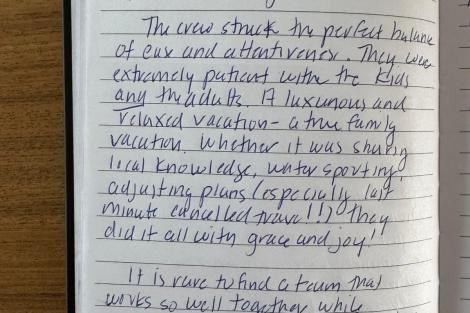 The crew struck the perfect balance
of ease and attentiveness. They were
extremely patient with the kids
any the adults. A luxurious and
relaxed vacation - a true family
vacation. Whether it was sharing
local knowledge, water sporting,
adjusting plans (especially last
minute cancelled travel!!) they
did it all with grace and joy!!
It is rare to find a team that
works so well together while